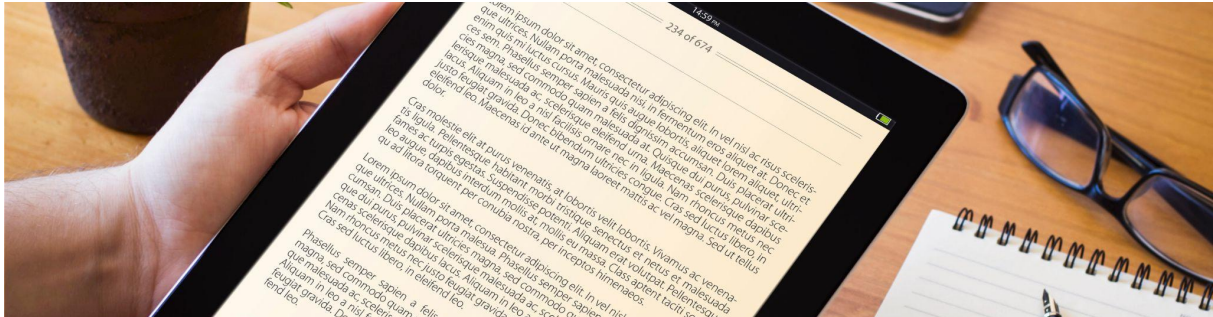 14:59 PM
234 of 674
Lorem ipsum dolor sit amet, consectetur adipiscing elit. In vel nisl ac risus sceleris-
que ultrices. Nullam porta malesuada nisi, in fermentum eros aliquet at. Donec et
enim quis mi luctus cursus. Mauris quis augue lobortis, aliquet lorem aliquet, ultri-
ces sem. Phasellus semper sapien a felis dignissim accumsan. Duis placerat ultri-
cies magna, sed commodo quam malesuada at. Quisque dui purus, pulvinar sce-
lerisque malesuada ac, scelerisque eleifend urna. Maecenas scelerisque dapibus
lacus. Aliquam in leo a nisl facilisis ornare nec in ligula. Nam rhoncus metus nec
justo feugiat gravida. Donec bibendum ultricies congue. Cras sed luctus libero, in
eleifend leo. Maecenas id ante ut magna laoreet mattis ac vel magna. Sed ut tellus
dolor.
Cras molestie elit at purus venenatis, at lobortis velit lobortis. Vivamus ac venena-
tis ligula. Pellentesque habitant morbi tristique senectus et netus et malesuada
fames ac turpis egestas. Suspendisse potenti. Aliquam erat volutpat. Pellentesqu
leo augue, dapibus interdum mollis at, mollis eu massa. Class aptent taciti so
qu ad litora torquent per conubia nostra, per inceptos himenaeos.
Lorem ipsum dolor sit amet, consectetur adipiscing elit. In vel nisl
que ultrices. Nullam porta malesua. Phasellus semper sapien
cumsan. Duis placerat ultricies magna, sed commodo qu
que dui purus, pulvinar scelerisque malesuada ac, scel
cenas scelerisque dapibus lacus. Aliquam in leo
Nam rhoncus metus nec justo feugiat gravida
Cras sed luctus libero, in eleifend leo.
Phasellus semper sapien a felis
magna, sed commodo quam
que malesuada ac, sceleri
Aliquam in leo a nisl f
feugiat gravida. Do
fend leo.